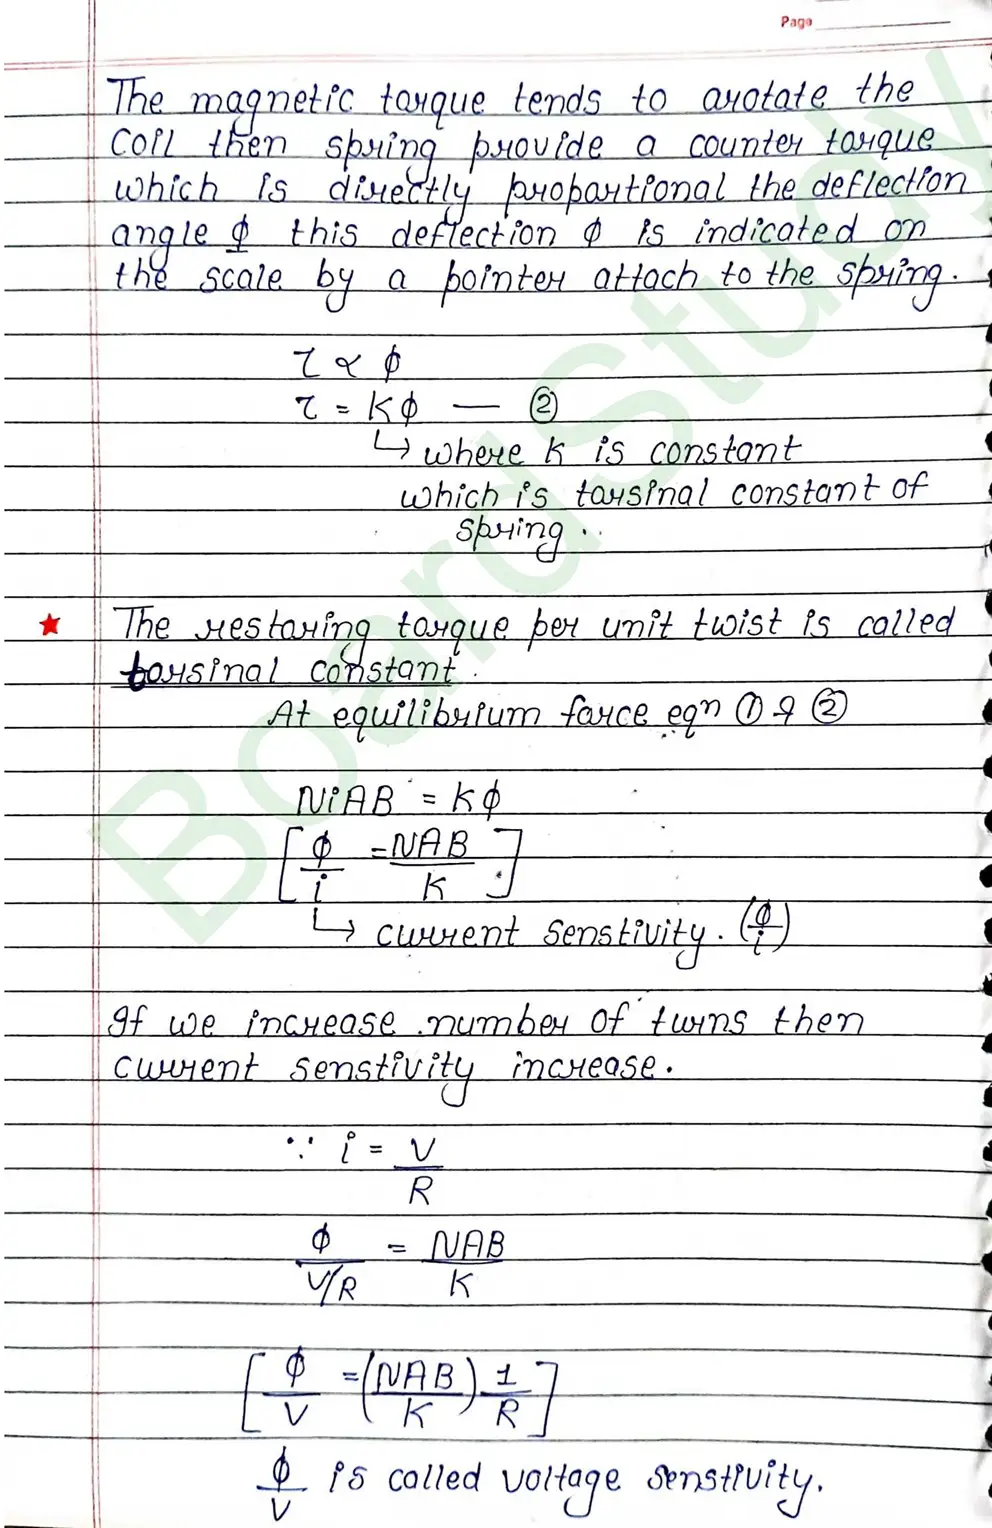 Page
The magnetic torque tends to rotate the
Coil then spring provide a counter torque
which is directly propartional the deflection
angle ϕ this deflection ϕ is indicated on
the scale by a pointer attach to the spring.
τ ∝ ϕ
τ = Kϕ — ②
↳ where K is constant
which is torsinal constant of
spring.
★ The restoring torque per unit twist is called
torsinal constant.
At equilibrium force eqn ① & ②
NiAB = Kϕ
[ϕ/i = NAB/K]
↳ current senstivity. (ϕ/i)
If we increase number of turns then
current senstivity increase.
∵ i = V/R
ϕ/V/R = NAB/K
[ϕ/V = (NAB/K) 1/R]
ϕ/V is called voltage senstivity.
BoardStudy